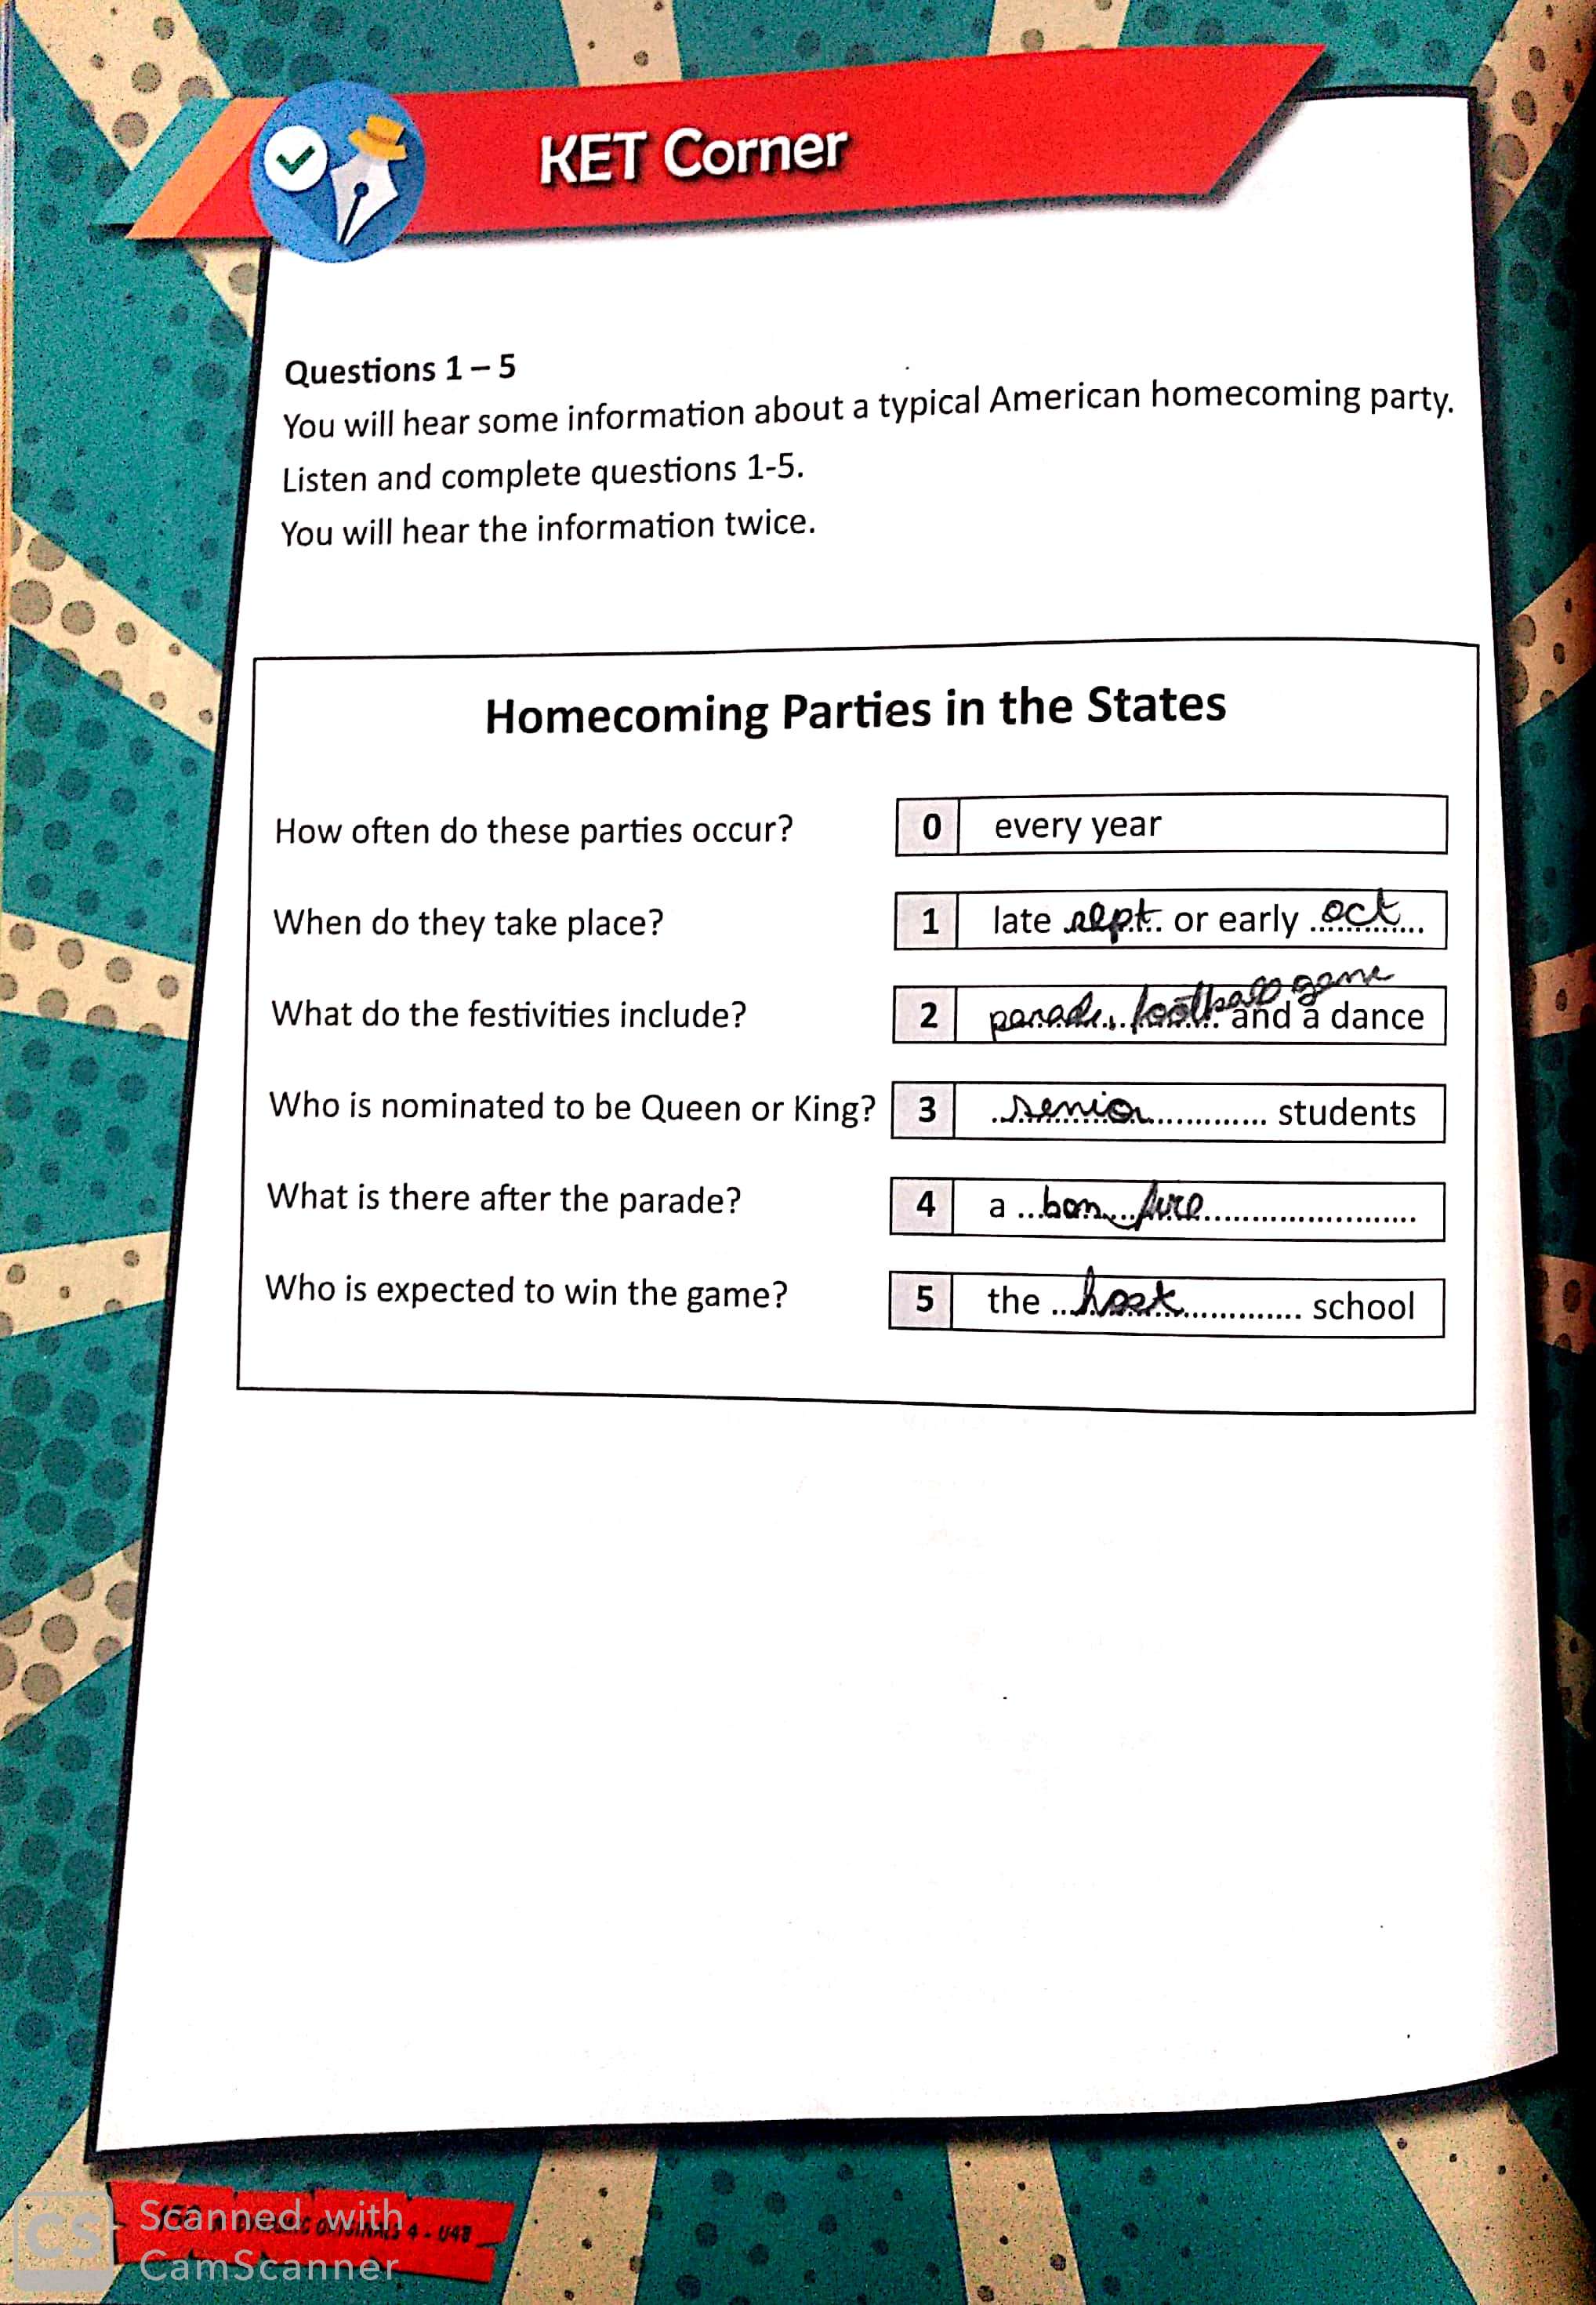 KET Corner
Questions 1 – 5
You will hear some information about a typical American homecoming party.
Listen and complete questions 1-5.
You will hear the information twice.
Homecoming Parties in the States
How often do these parties occur? 0 every year
When do they take place? 1 late sept. or early oct
What do the festivities include? 2 parade, football game and a dance
Who is nominated to be Queen or King? 3 senior students
What is there after the parade? 4 a bon fire
Who is expected to win the game? 5 the host school
4 - U48
Scanned with
CS CamScanner